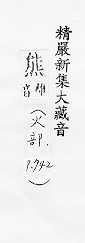 精嚴新集大藏音
熊
雄
音
(火部.
9.942)